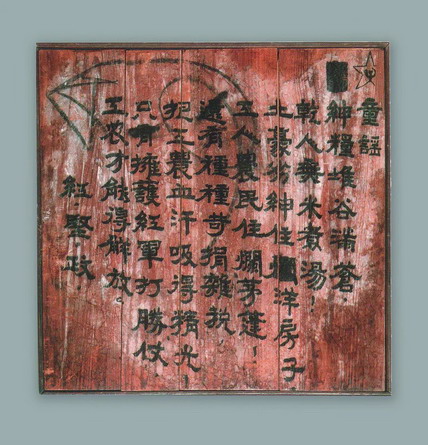 童謠
紳糧堆谷满倉.
乾人米煮湯!
土豪劣紳住洋房子.
工人農民住爛茅蓬!
還有種種苛捐雜税,
把工農血汗吸得精光!
只有擁護紅軍打勝仗.
工农才能得解放。
紅.堅.政.